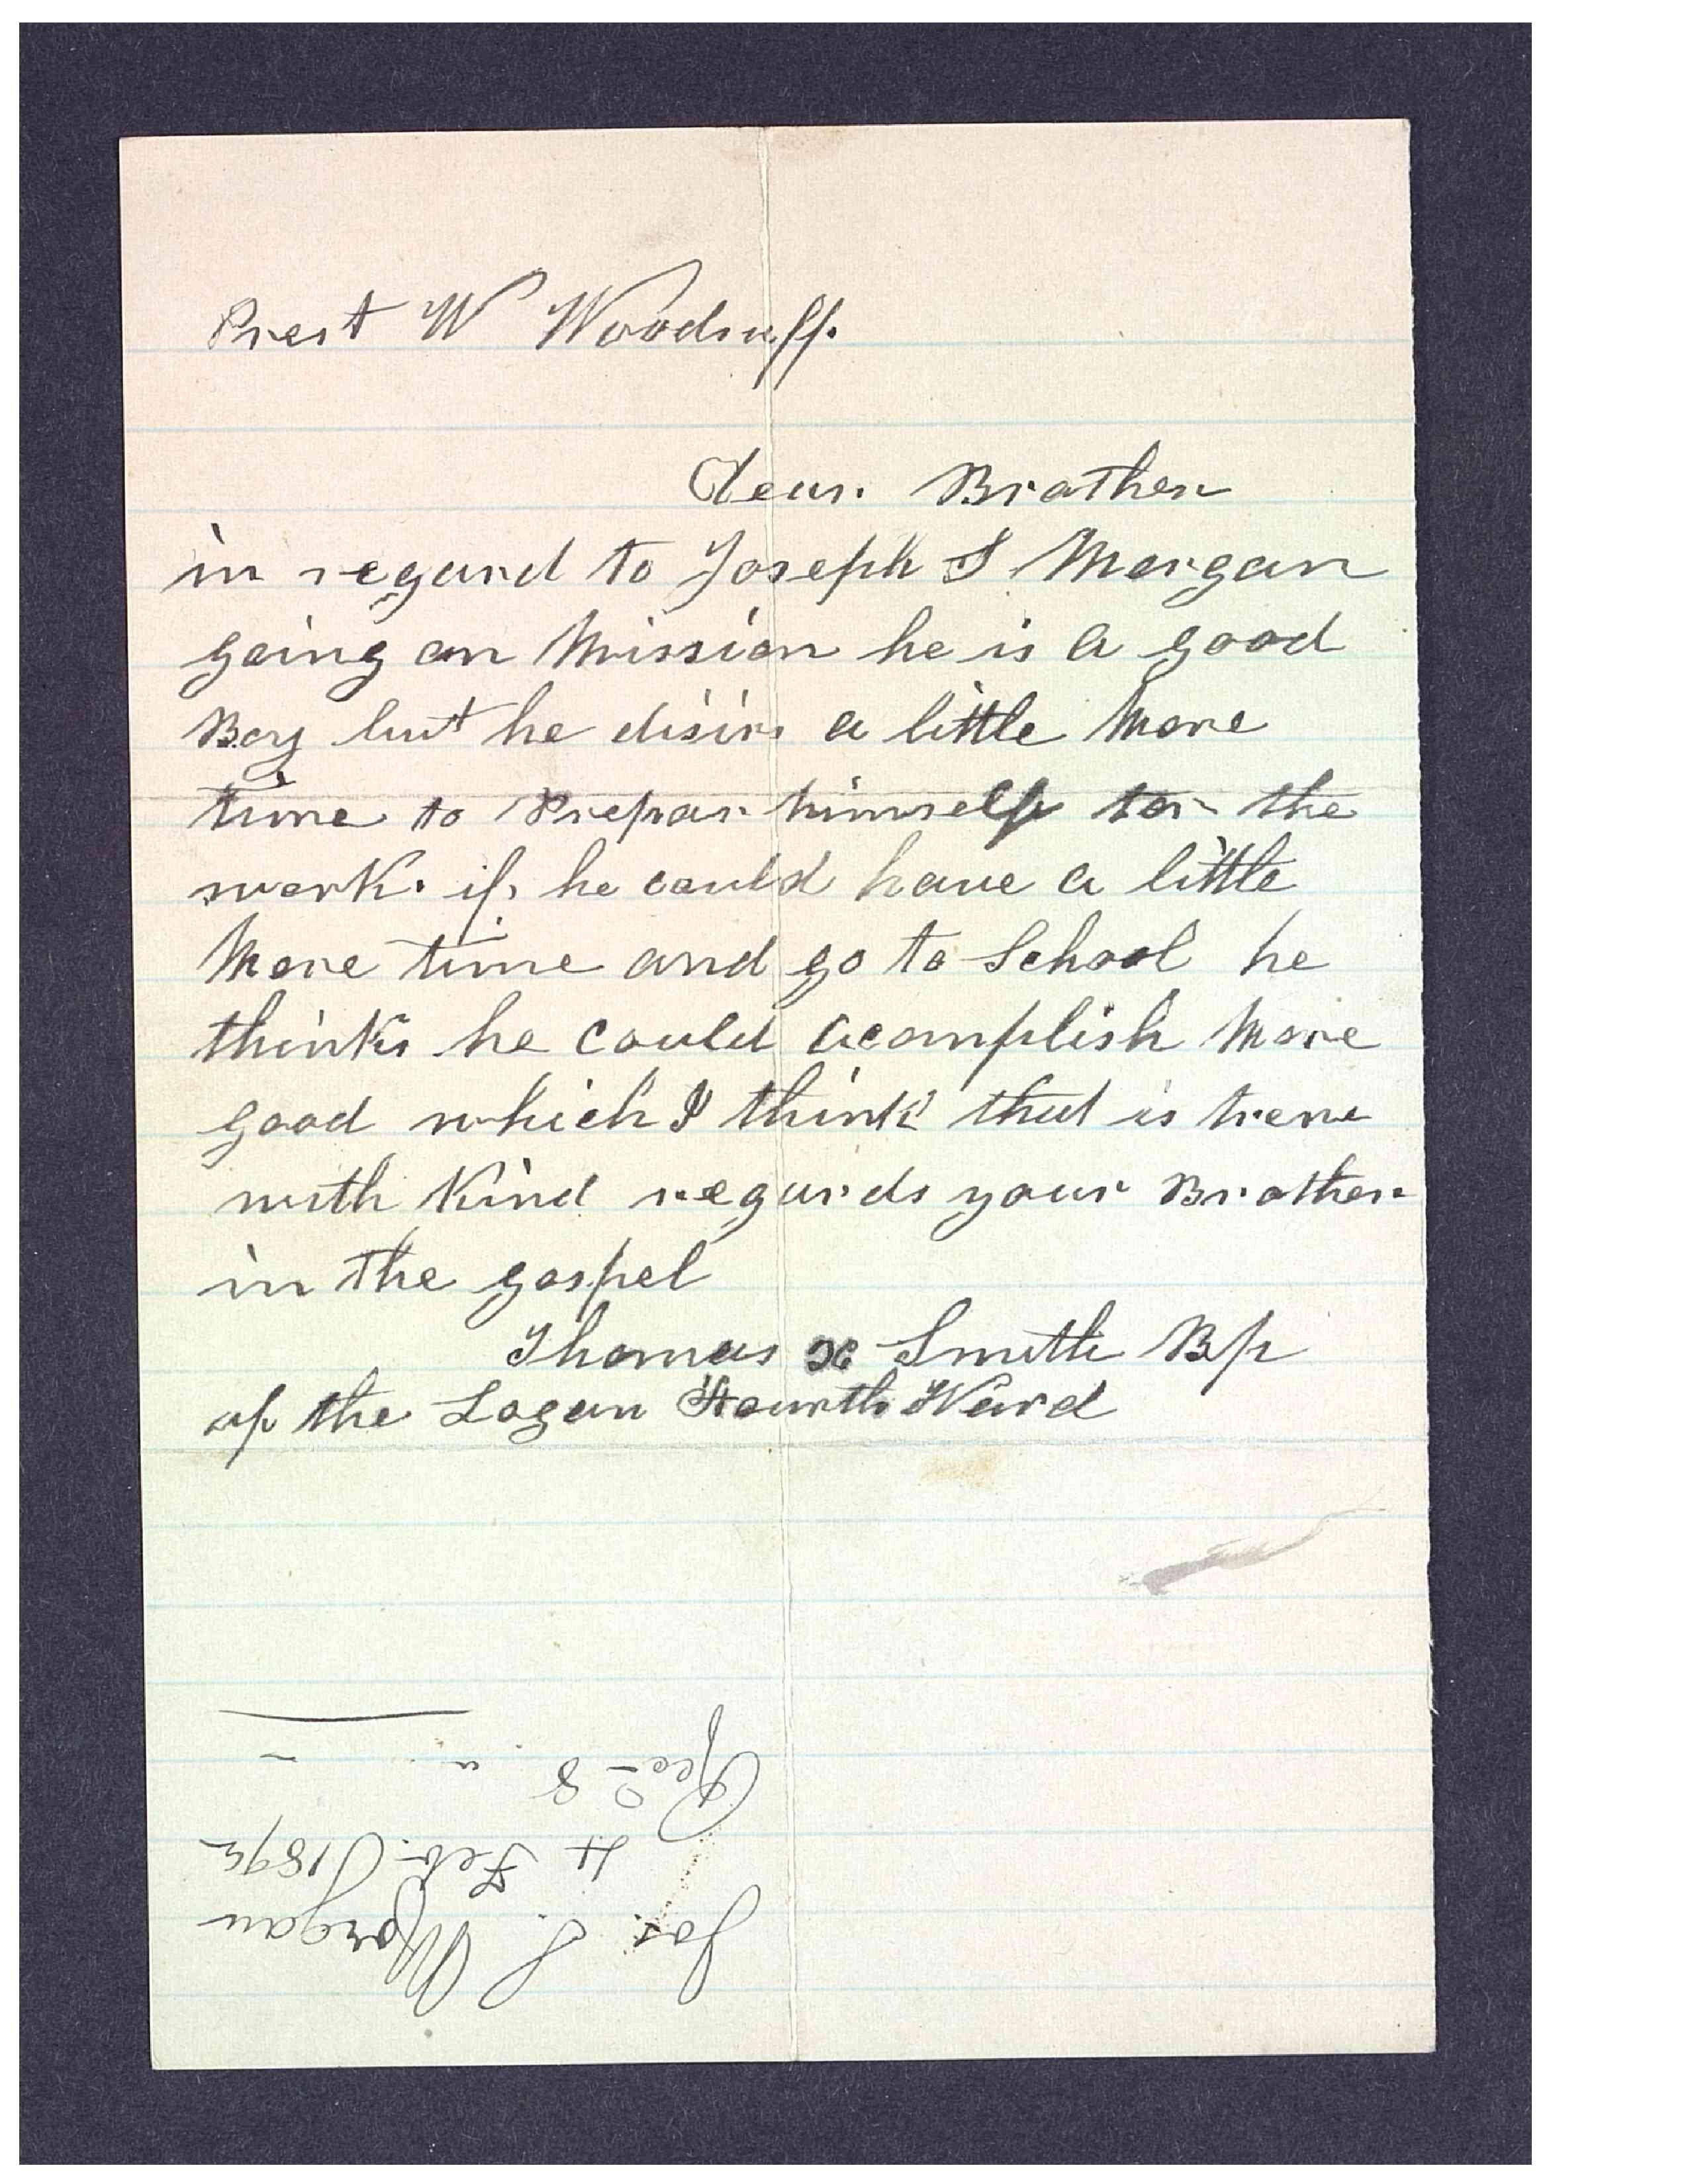 Prest W Woodruff.
dear Brother
in regard to Joseph S Morgan
going on Mission he is a good
Boy but he disirs a little More
time to Prepar himself for the
work. if he could have a little
More time and go to School he
thinks he could acomplish More
good which I think that is treue
with Kind regards your Brother
in the gospel
Thomas X Smith Bp
of the Logan Fourth Ward
Jos. S. Morgan
4 Feb. 1892
Recd 8 " "